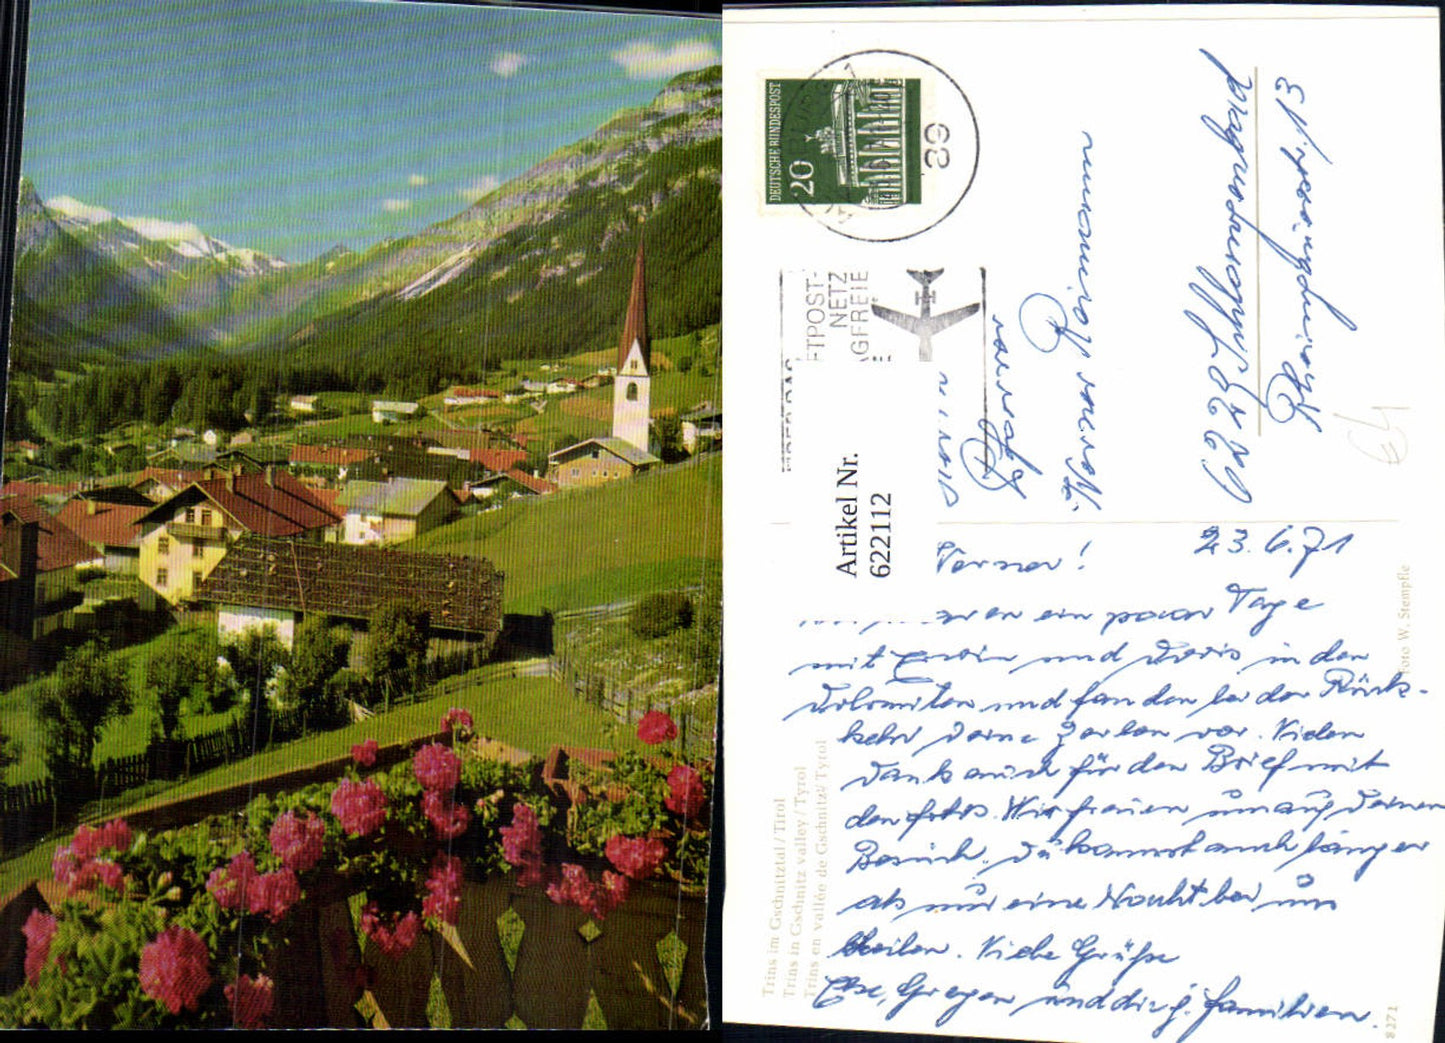 DEUTSCHE BUNDESPOST
20
89
FTPOST-
NETZ
GFREIE
Artikel Nr.
622112
Pfarrer
Werner
6228
13
23.6.71
Werner!
waren ein paar Tage
mit Erwin und Doris in den
Dolomiten und fanden bei der Rück-
kehr Deine Zeilen vor. Vielen
Dank auch für den Brief mit
den Fotos. Wir freuen uns auf Deinen
Besuch. Du kannst auch länger
als nur eine Nacht bei uns
bleiben. Viele Grüße
Gregor und die g. Familien.
Trins im Gschnitztal / Tirol
Trins in Gschnitz valley / Tyrol
Trins en vallée de Gschnitz / Tyrol
Foto W. Stempfle
8271